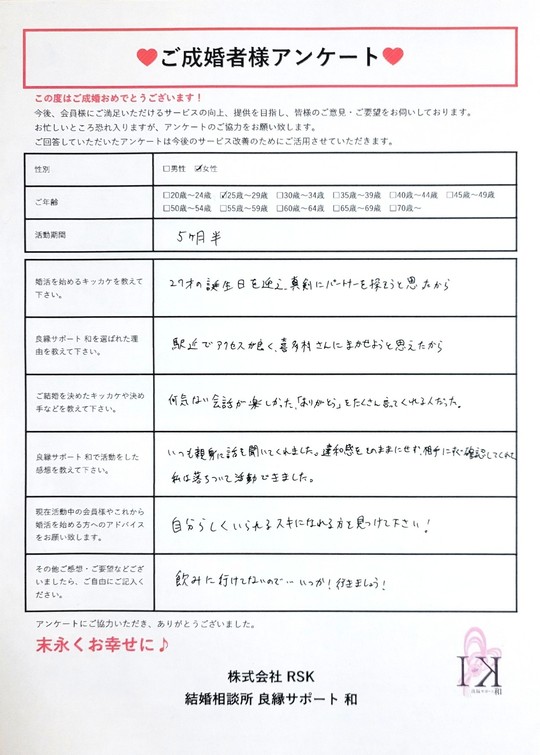 ❤ご成婚者様アンケート❤
この度はご成婚おめでとうございます！
今後、会員様にご満足いただけるサービスの向上、提供を目指し、皆様のご意見・ご要望をお伺いしております。
お忙しいところ恐れ入りますが、アンケートのご協力をお願い致します。
ご回答していただいたアンケートは今後のサービス改善のためにご活用させていただきます。
性別
□男性 ☑女性
ご年齢
□20歳～24歳 ☑25歳～29歳 □30歳～34歳 □35歳～39歳 □40歳～44歳 □45歳～49歳
□50歳～54歳 □55歳～59歳 □60歳～64歳 □65歳～69歳 □70歳～
活動期間
5ヶ月半
婚活を始めるキッカケを教えて
下さい。
27才の誕生日を迎え、真剣にパートナーを探そうと思ったから
良縁サポート 和を選ばれた理
由を教えて下さい。
駅近でアクセスが良く、喜多村さんにまかせようと思えたから
ご結婚を決めたキッカケや決め
手などを教えて下さい。
何気ない会話が楽しかった、「ありがとう」をたくさん言ってくれる人だった。
良縁サポート 和で活動をした
感想を教えて下さい。
いつも親身に話を聞いてくれました。違和感をそのままにせず、相手にすぐ確認してくれて
私は落ちついて活動できました。
現在活動中の会員様やこれから
婚活を始める方へのアドバイス
をお願い致します。
自分らしくいられるスキになれる方を見つけて下さい！
その他ご感想・ご要望などござ
いましたら、ご自由にご記入く
ださい。
飲みに行けてないので…いつか！行きましょう！
アンケートにご協力いただき、ありがとうございました。
末永くお幸せに♪
株式会社 RSK
結婚相談所 良縁サポート 和
良縁サポート 和